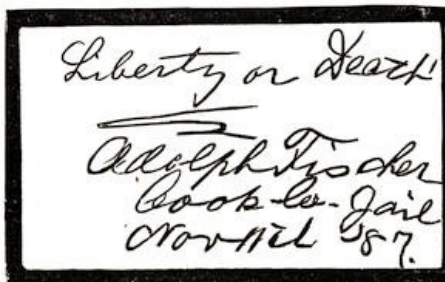 Liberty or Death
Adolph Fischer
Cook-Co-Jail
Nov 11th '87.